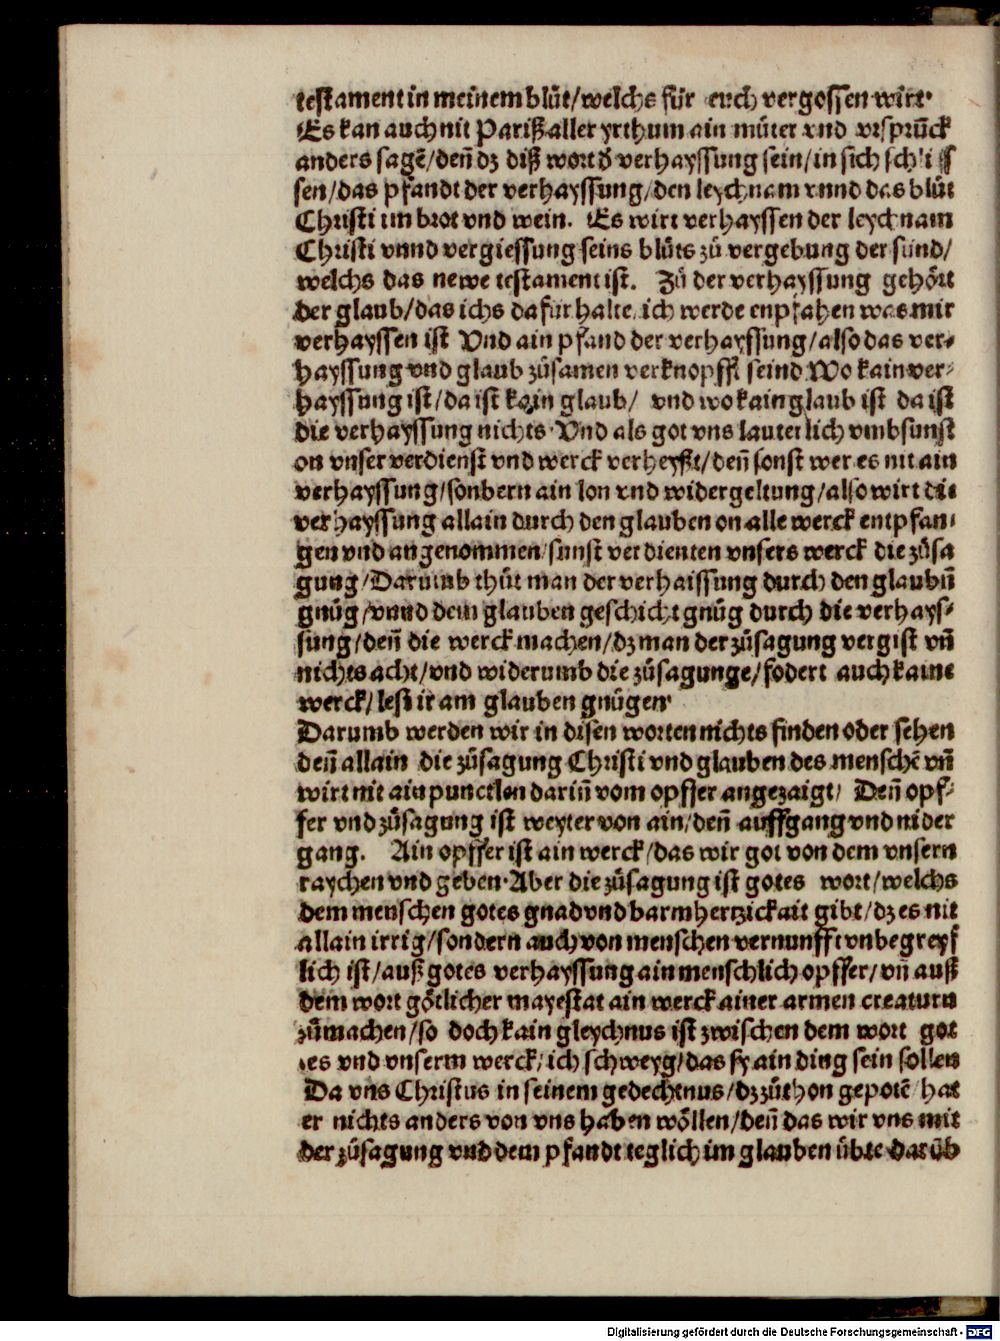 testament in meinem blůt/welchs für euch vergossen wirt.
Es kan auch nit Pariß aller yrthum ain můter vnd vrsprūck
anders sagē/deñ dz diß wort d̄ verhayssung sein/in sich schlies
sen/das pfandt der verhayssung/den leychnam vnnd das blůt
Christi im brot vnd wein. Es wirt verhayssen der leychnam
Christi vnnd vergiessung seins blůts zů vergebung der sünd/
welchs das newe testament ist. Zů der verhayssung gehőrt
der glaub/das ichs dafür halte, ich werde enpfahen was mir
verhayssen ist Vnd ain pfand der verhayssung/also das ver-
hayssung vnd glaub zůsamen verknopfft seind. Wo kain ver-
hayssung ist/da ist kain glaub/ vnd wo kain glaub ist da ist
die verhayssung nichts. Vnd als got vns lauterlich vmbsunst
on vnser verdienst vnd werck verheyßt/deñ sonst wer es nit ain
verhayssung/sonbern ain lon vnd widergeltung/also wirt die
verhayssung allain durch den glauben on alle werck entpfan-
gen vnd angenommen/sunst verdienten vnsers werck die zůsa
gung/Darumb thůt man der verhaissung durch den glaubñ
gnůg/vnnd dem glauben geschicht gnůg durch die verhays-
sung/deñ die werck machen/dz man der zůsagung vergist vñ
nichts acht/vnd widerumb die zůsagunge/fodert auch kaine
werck/lest ir am glauben gnůgen.
Darumb werden wir in disen worten nichts finden oder sehen
deñ allain die zůsagung Christi vnd glauben des menschē vñ
wirt nit ain punctlen dariñ vom opffer angezaigt/ Deñ opf-
fer vnd zůsagung ist weyter von ain/deñ auffgang vnd nider
gang. Ain opffer ist ain werck/das wir got von dem vnsern
raychen vnd geben. Aber die zůsagung ist gotes wort/welchs
dem menschen gotes gnad vnd barmhertzickait gibt/dz es nit
allain irrig/sondern auch von menschen vernunfft vnbegreyf
lich ist/auß gotes verhayssung ain menschlich opffer/vñ auß
dem wort gőtlicher mayestat ain werck ainer armen creaturn
zůmachen/so doch kain gleychnus ist zwischen dem wort got
tes vnd vnserm werck/ich schweyg/das sy ain ding sein sollen
Da vns Christus in seinem gedechtnus/dz zůthon gepotē hat
er nichts anders von vns haben wőllen/deñ das wir vns mit
der zůsagung vnd dem pfandt teglich im glauben übte darūb
Digitalisierung gefördert durch die Deutsche Forschungsgemeinschaft - DFG